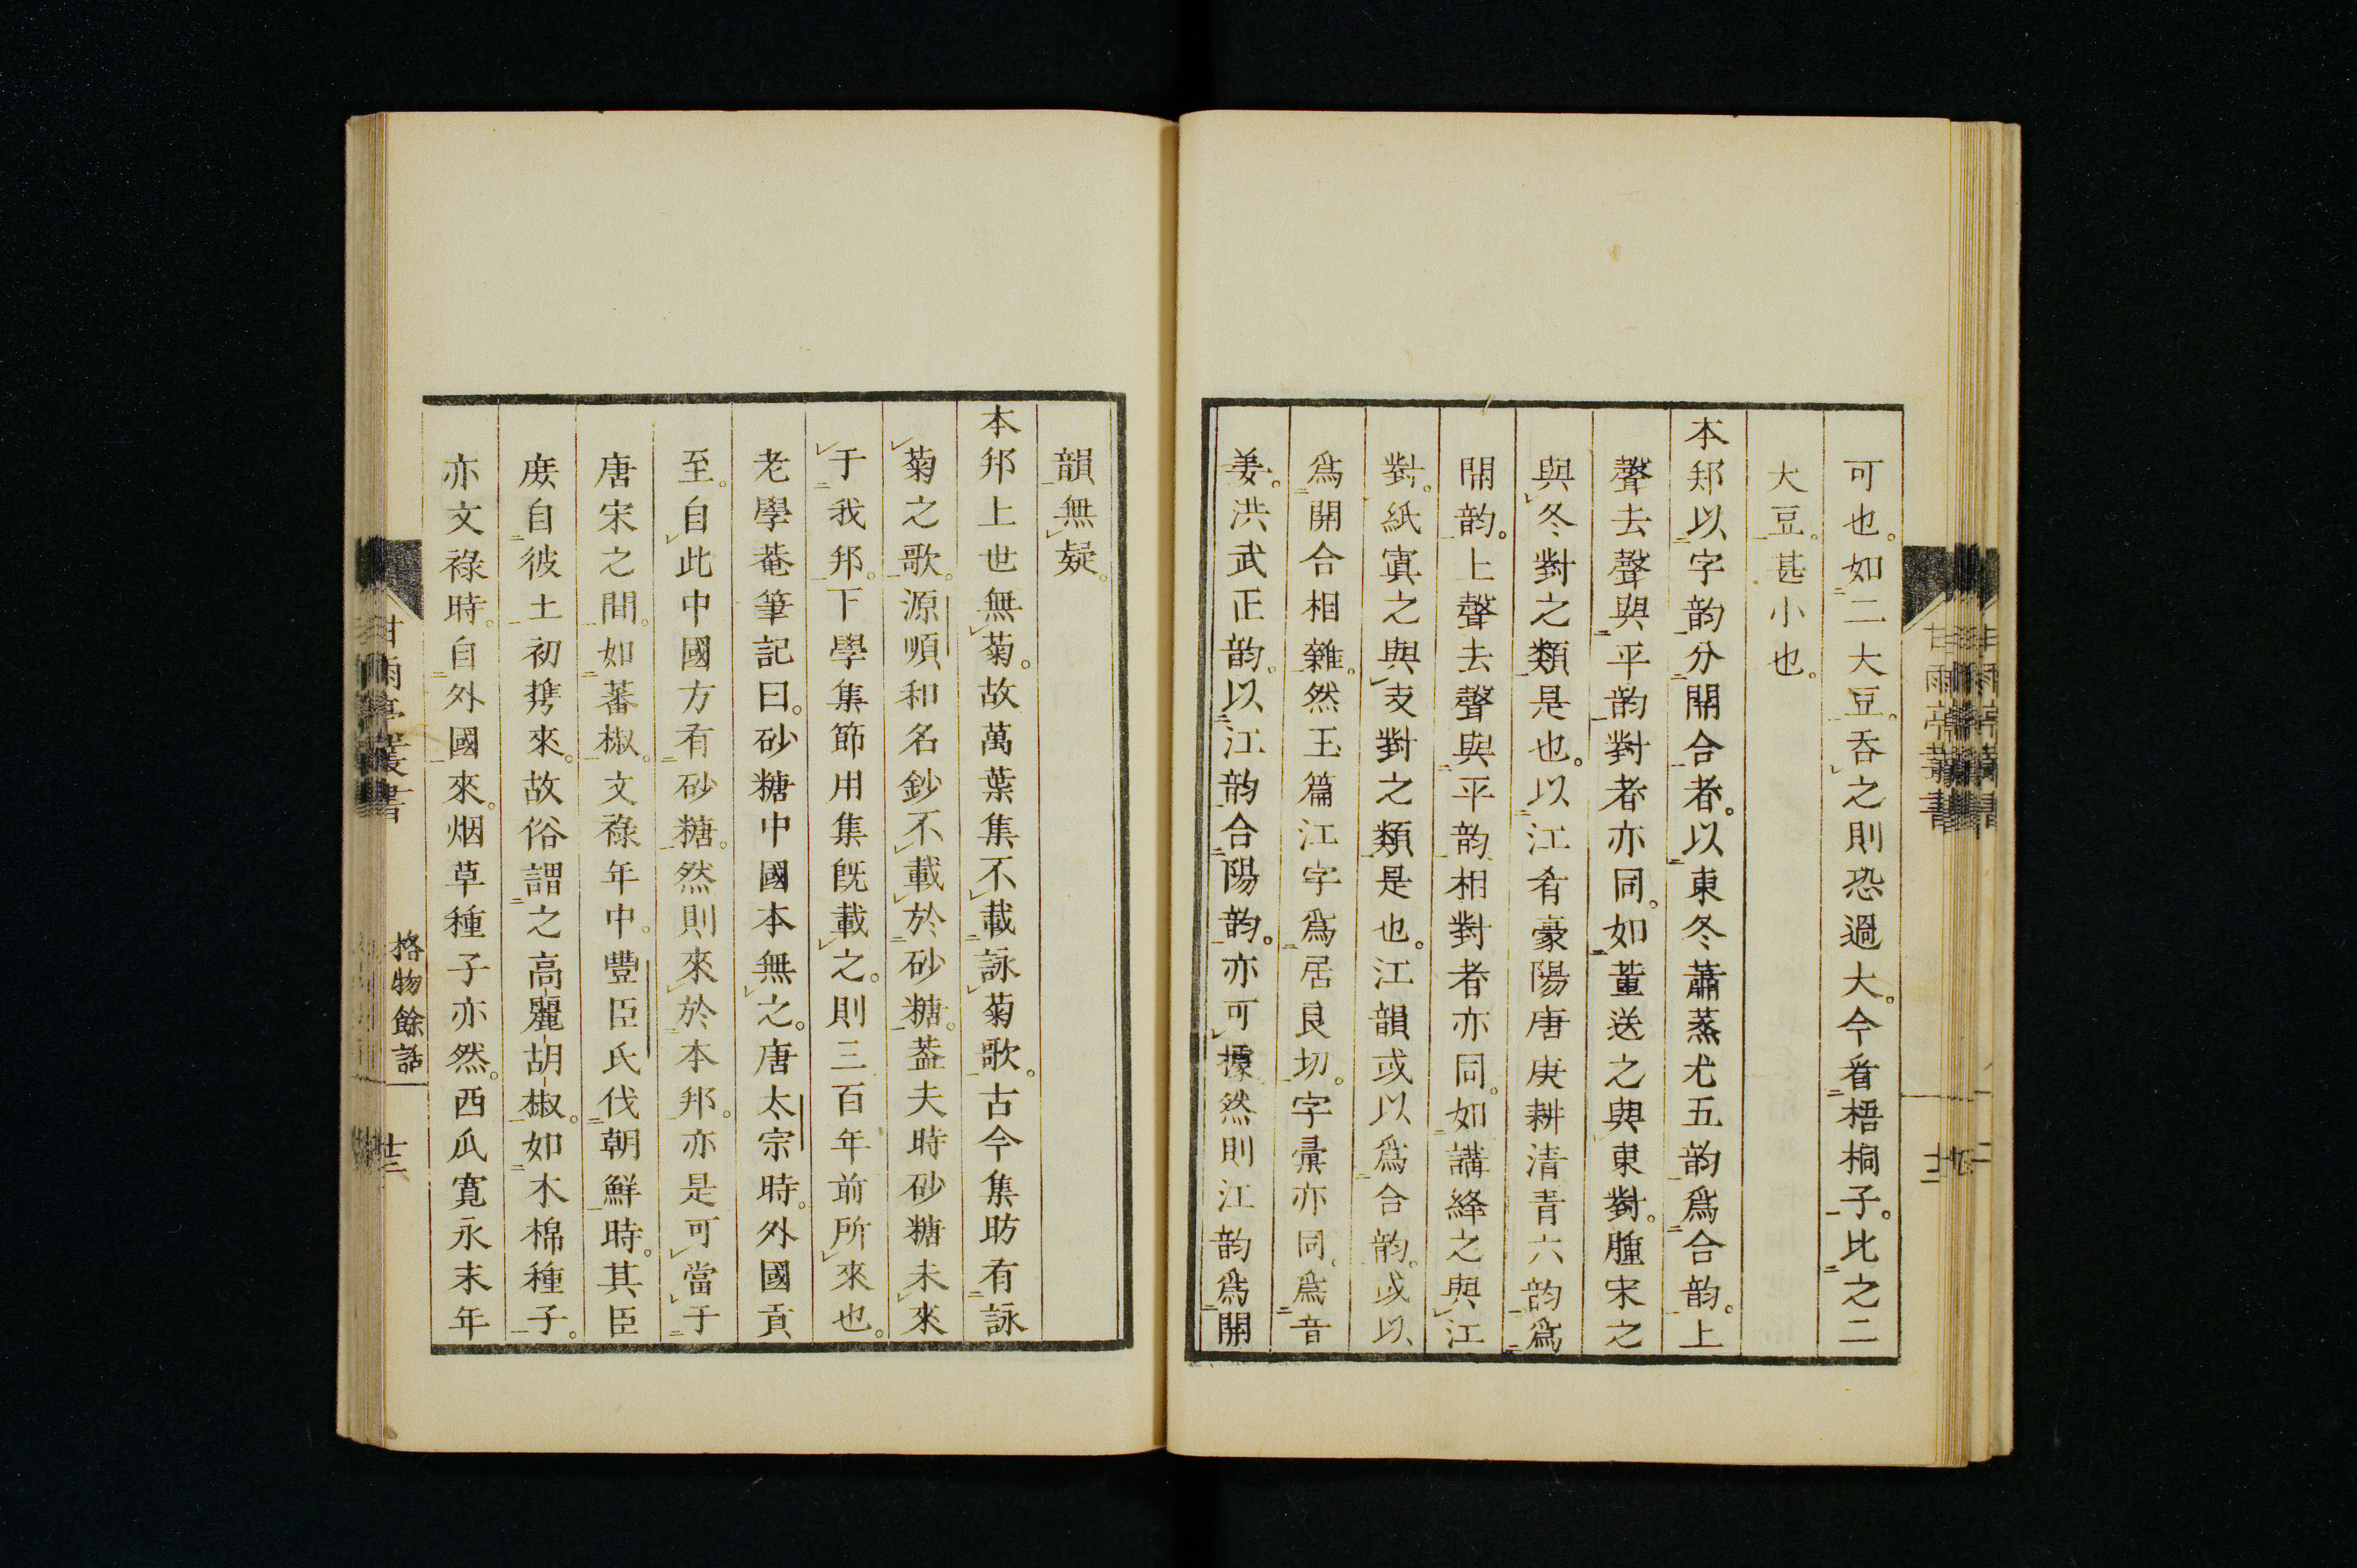 可也。如二大豆。吞之則恐過大。今看梧桐子。比之二
大豆。甚小也。
本邦以字韵分開合者。以東冬蕭蒸尤五韵爲合韵。上
聲去聲與平韵對者亦同。如董送之與東對。腫宋之
與冬對之類是也。以江肴豪陽唐庚耕清青六韵爲
開韵。上聲去聲與平韵相對者亦同。如講絳之與江
對。紙寘之與支對之類是也。江韻或以爲合韵。或以
爲開合相雜。然玉篇江字爲居良切。字彙亦同。爲音
姜。洪武正韵。以江韵合陽韵。亦可據。然則江韵爲開
韻無疑。
本邦上世無菊。故萬葉集不載詠菊歌。古今集昉有詠
菊之歌。源順和名鈔不載於砂糖。蓋夫時砂糖未來
于我邦。下學集節用集旣載之。則三百年前所來也。
老學菴筆記曰。砂糖中國本無之。唐太宗時。外國貢
至。自此中國方有砂糖。然則來於本邦。亦是可當于
唐宋之間。如蕃椒。文祿年中。豐臣氏伐朝鮮時。其臣
庻自彼土初携來。故俗謂之高麗胡椒。如木棉種子。
亦文祿時。自外國來。烟草種子亦然。西瓜寛永末年
甘雨亭叢書
格物餘話
廿三